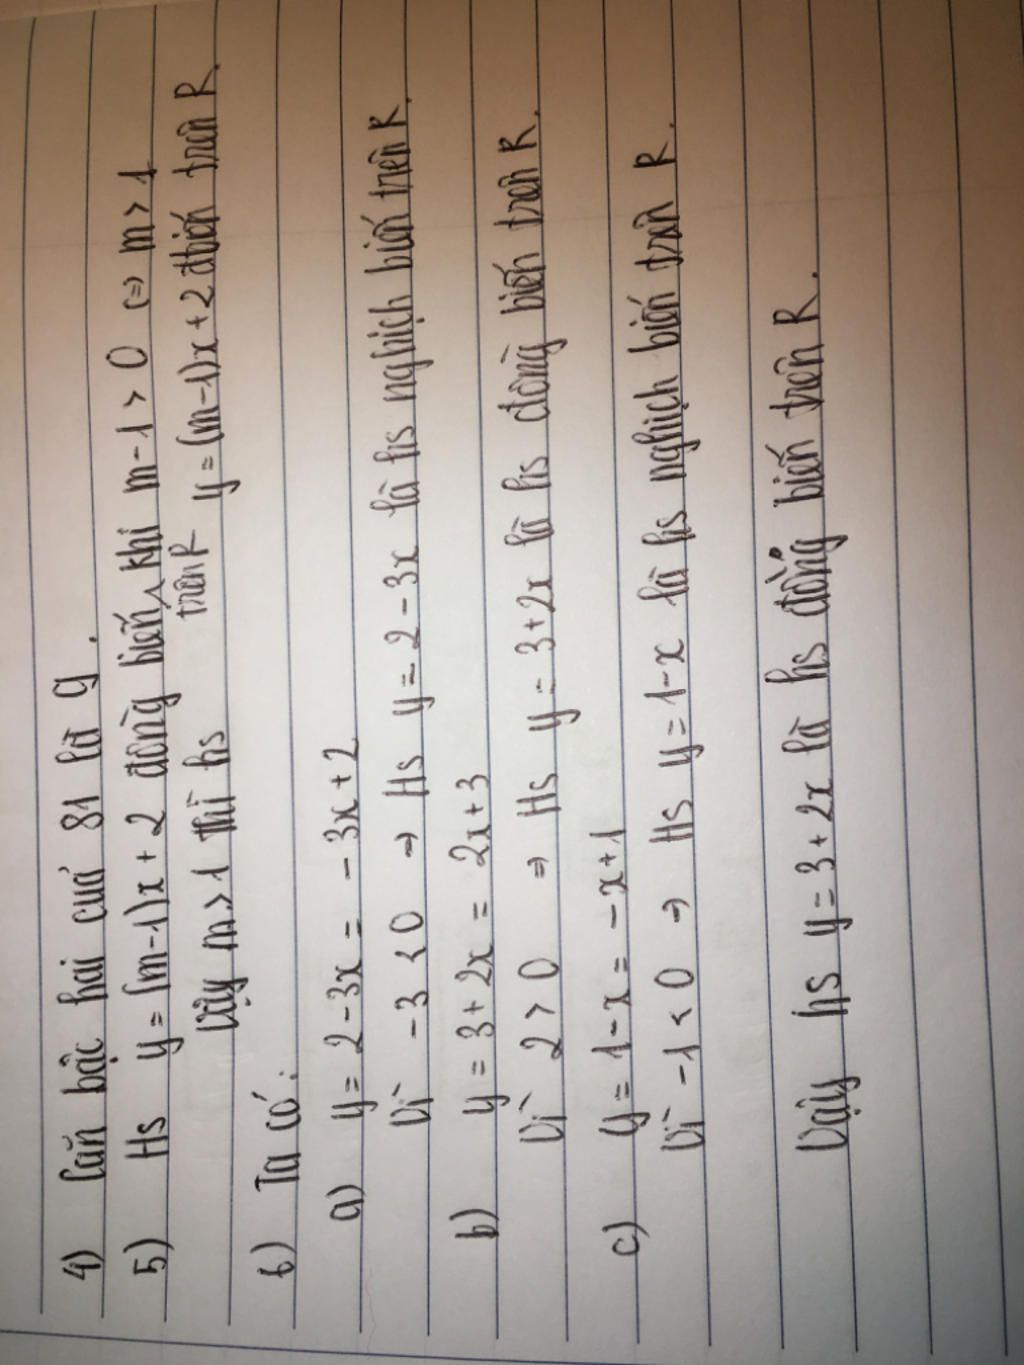 4) Căn bậc hai của 81 là 9.
5) Hs y = (m-1)x + 2 đồng biến trên R khi m-1 > 0 <=> m > 1
Vậy m > 1 thì hs y = (m-1)x + 2 đbiến trên R.
6) Ta có:
a) y = 2 - 3x = - 3x + 2
Vì -3 < 0 => Hs y = 2 - 3x là hs nghịch biến trên R.
b) y = 3 + 2x = 2x + 3
Vì 2 > 0 => Hs y = 3 + 2x là hs đồng biến trên R.
c) y = 1 - x = - x + 1
Vì -1 < 0 => Hs y = 1 - x là hs nghịch biến trên R.
Vậy hs y = 3 + 2x là hs đồng biến trên R.